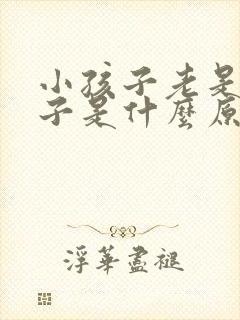 小孩子老是
子是什麼原
浮華盡褪